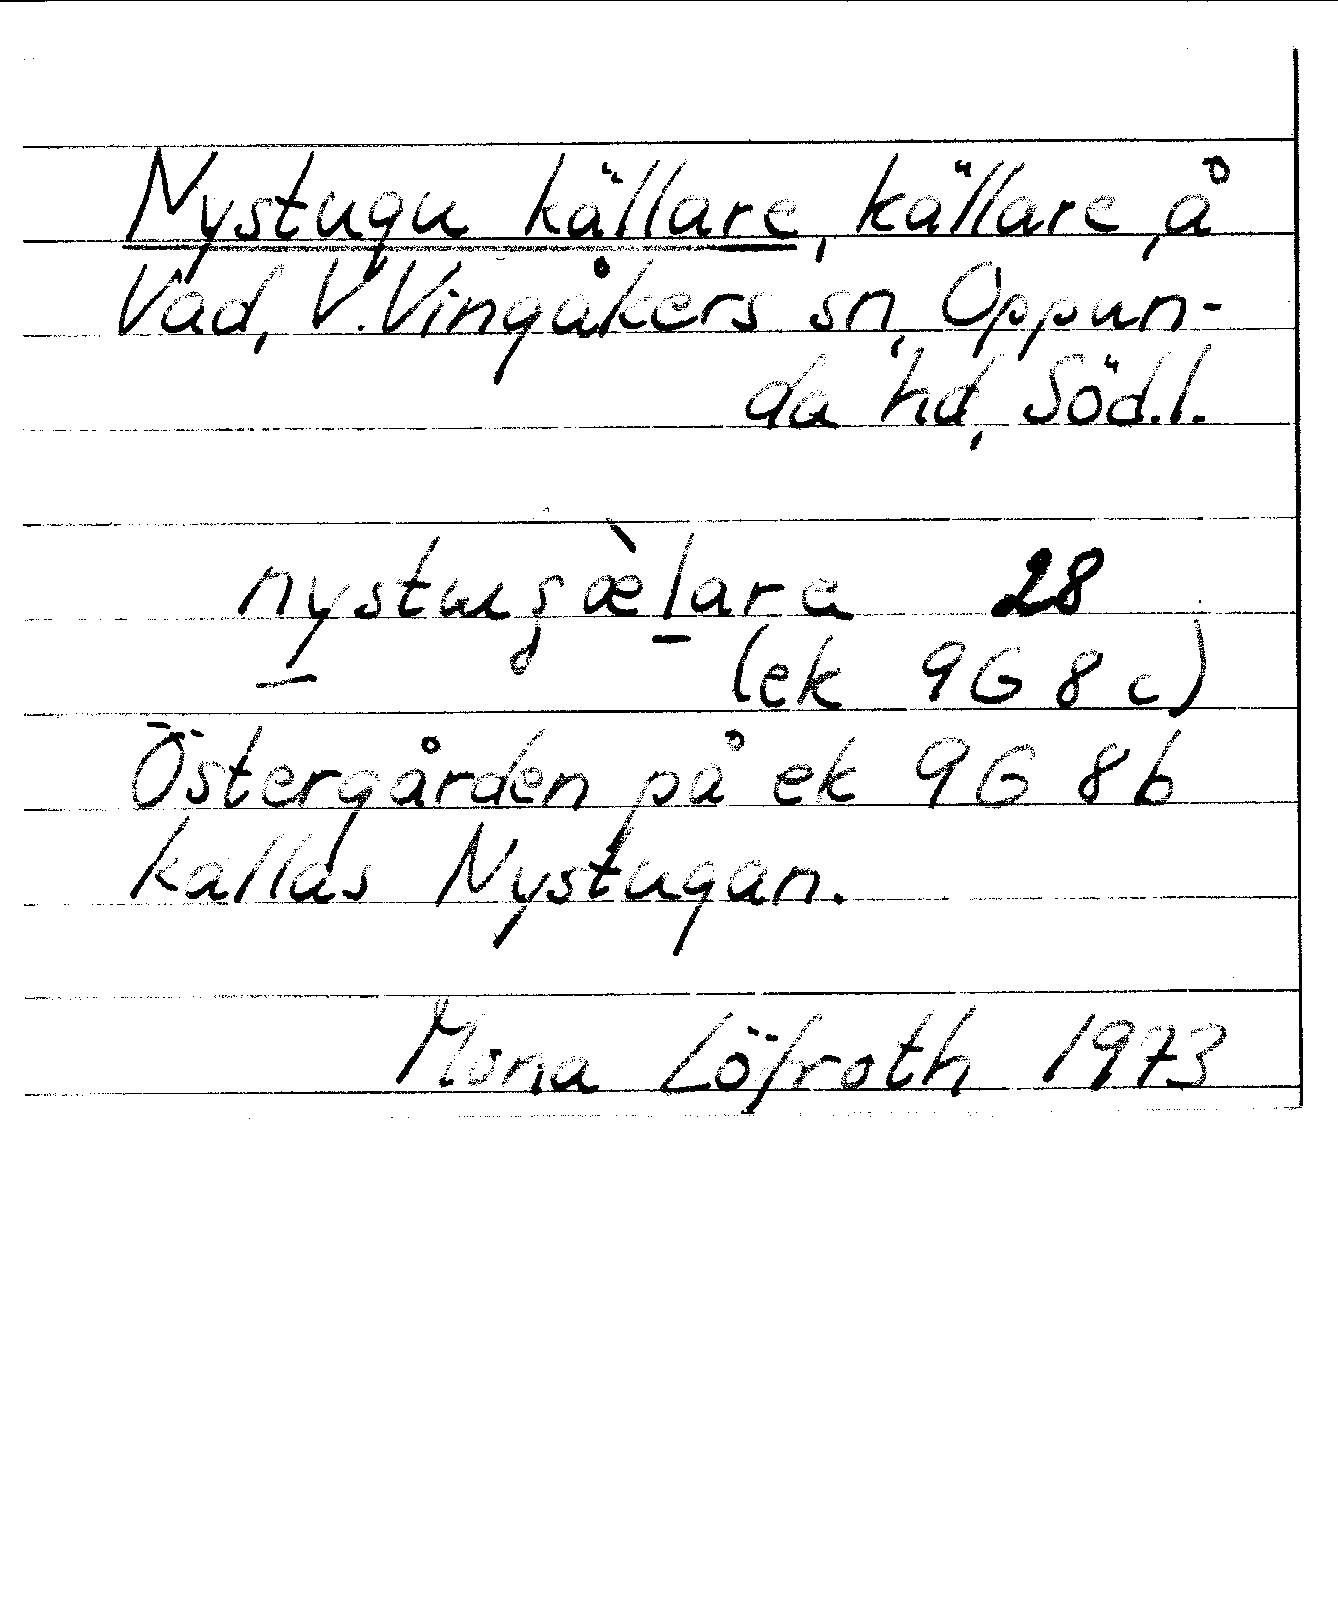 Nystugu källare, källare, å
Vad, V. Vingåkers sn, Oppun-
da hd, Söd.l.
28
(ek 9G 8c)
Östergården på ek 9G 8b
kallas Nystugan.
Mona Löfroth 1973